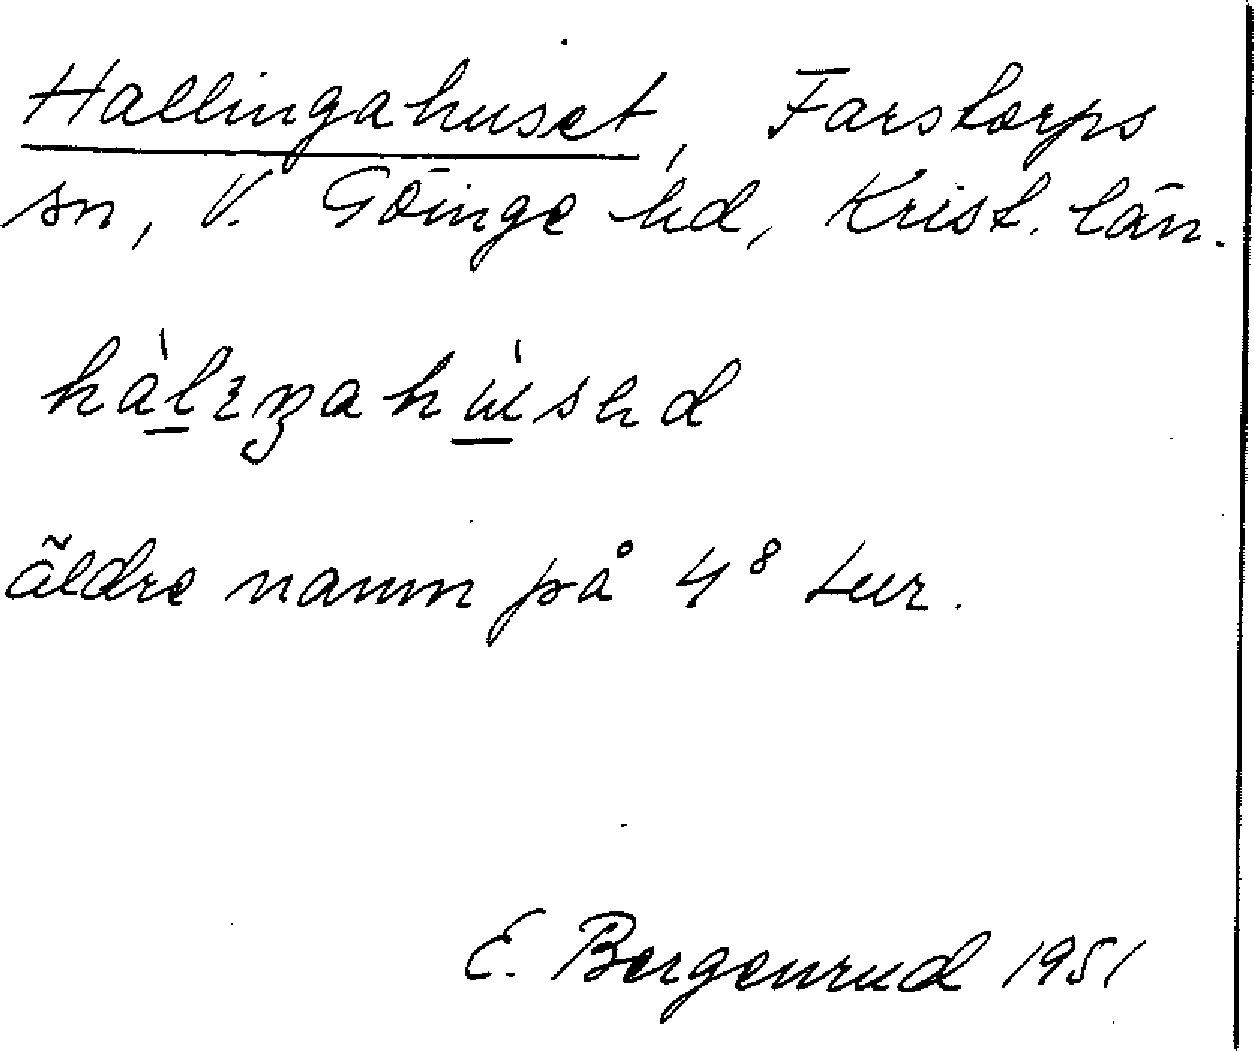 Hallingahuset, Farstorps
sn, V. Göinge hd, Krist. län.
äldre namn på 4⁸ Lur.
E. Bergenrud 1951